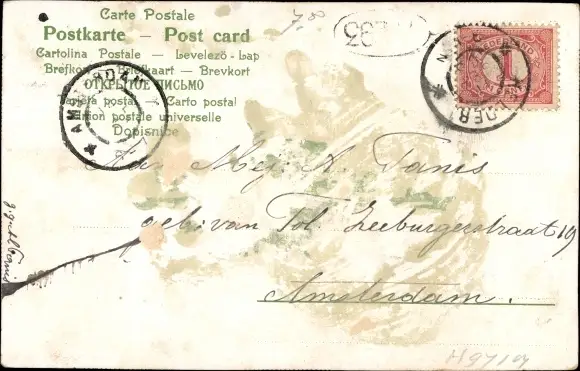 Carte Postale
Postkarte — Post card
Cartolina Postale — Levelező-Lap
Brefkort — Briefkaart — Brevkort
ОТКРЫТОЕ ПИСЬМО
Tarjeta postal — Carto postal
Union postale universelle
Dopisnice
AMSTERDAM
NEDERLAND
1
CENT
Aan Mej. A. Tanis
geb: van Tol. Zeeburgerstraat 19
Amsterdam.